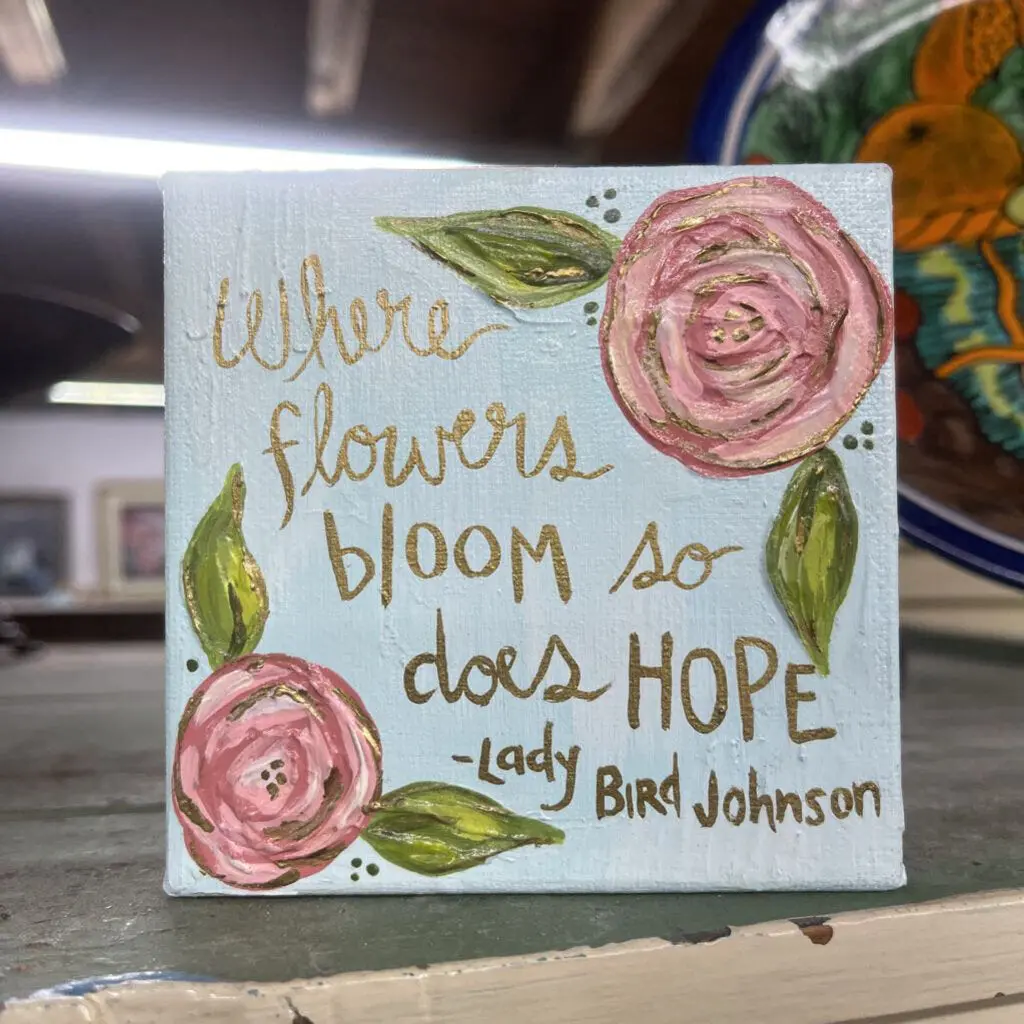 Where
flowers
bloom so
does HOPE
-Lady Bird Johnson